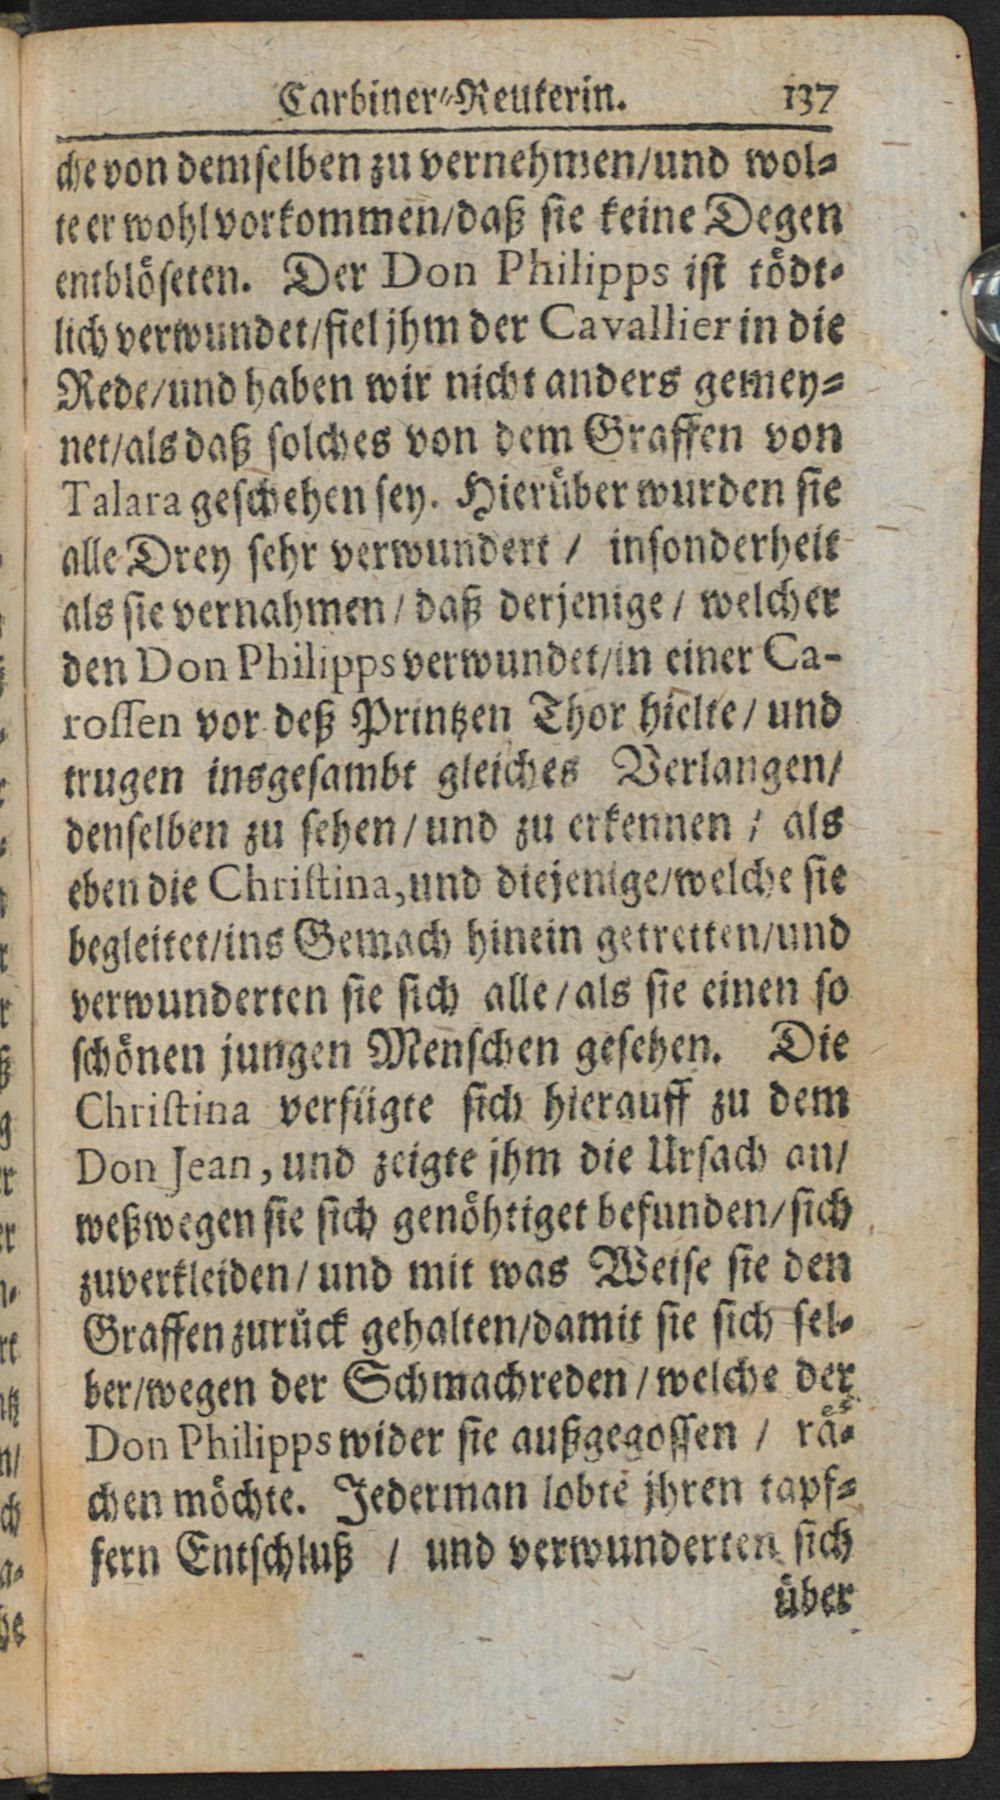 Carbiner-Reuterin. 137
che von demselben zu vernehmen/und wol-
te er wohl vorkommen/daß sie keine Degen
entblöseten. Der Don Philipps ist tödt-
lich verwundet/fiel jhm der Cavallier in die
Rede/und haben wir nicht anders gemey-
net/als daß solches von dem Graffen von
Talara geschehen sey. Hierüber wurden sie
alle Drey sehr verwundert / insonderheit
als sie vernahmen/ daß derjenige / welcher
den Don Philipps verwundet/in einer Ca-
rossen vor deß Printzen Thor hielte / und
trugen insgesambt gleiches Verlangen/
denselben zu sehen/ und zu erkennen / als
eben die Christina, und diejenige/welche sie
begleitet/ins Gemach hinein getretten/und
verwunderten sie sich alle / als sie einen so
schönen jungen Menschen gesehen. Die
Christina verfügte sich hierauff zu dem
Don Jean, und zeigte jhm die Ursach an/
weßwegen sie sich genöhtiget befunden/sich
zuverkleiden/ und mit was Weise sie den
Graffen zurück gehalten/damit sie sich sel-
ber/wegen der Schmachreden / welche der
Don Philipps wider sie außgegossen / rä-
chen möchte. Jederman lobte jhren tapf-
fern Entschluß / und verwunderten sich
über